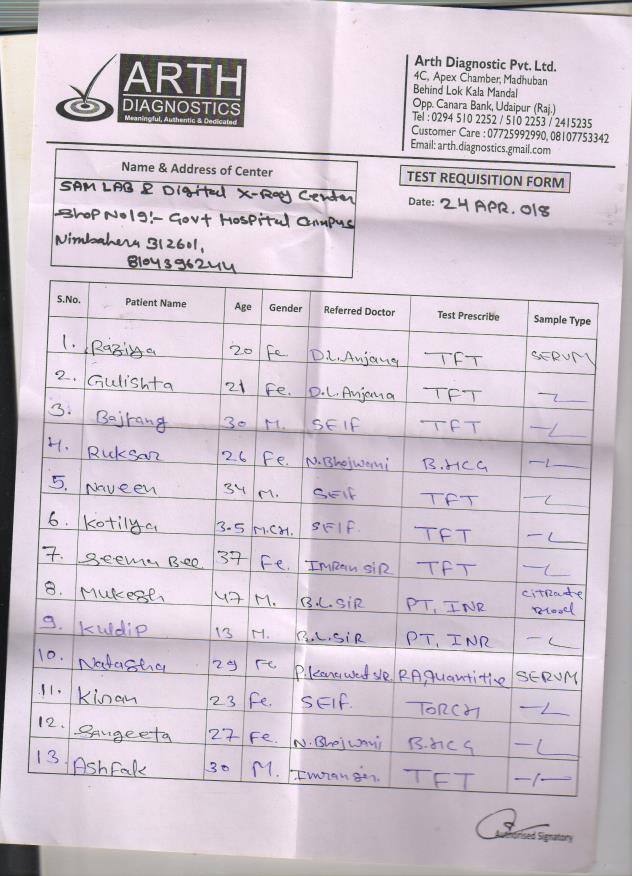 ARTH
DIAGNOSTICS
Meaningful, Authentic & Dedicated
Arth Diagnostic Pvt. Ltd.
4C, Apex Chamber, Madhuban
Behind Lok Kala Mandal
Opp. Canara Bank, Udaipur (Raj.)
Tel : 0294 510 2252 / 510 2253 / 2415235
Customer Care : 07725992990, 08107753342
Email: arth.diagnostics.gmail.com
Name & Address of Center
SAM LAB & Digital X-Ray Center
Shop No 19:- Govt Hospital Campus
Nimbahera 312601,
8104396244
TEST REQUISITION FORM
Date: 24 APR. 018
S.No. Patient Name Age Gender Referred Doctor Test Prescribe Sample Type
1. Raziya 20 Fe D.L. Anjana TFT SERUM
2. Gulishta 21 Fe. D.L. Anjana TFT
3. Bajrang 30 M. SEIF TFT
4. Ruksar 26 Fe. N. Bhojwani B.HCG
5. Naveen 34 M. SEIF TFT
6. Kotilya 3.5 M.CH. SEIF. TFT
7. Seema Bee 37 Fe. IMRan SIR TFT
8. Mukesh 47 M. B.L. SIR PT, INR Citrate Blood
9. Kuldip 13 M. B.L. SIR PT, INR
10. Natasha 29 Fe. P. Kanawat SIR RA, Quantitive SERUM
11. Kiran 23 Fe. SEIF. TORCH
12. Sangeeta 27 Fe. N. Bhojwani B.HCG
13. Ashfak 30 M. Imran sir. TFT
Authorised Signatory